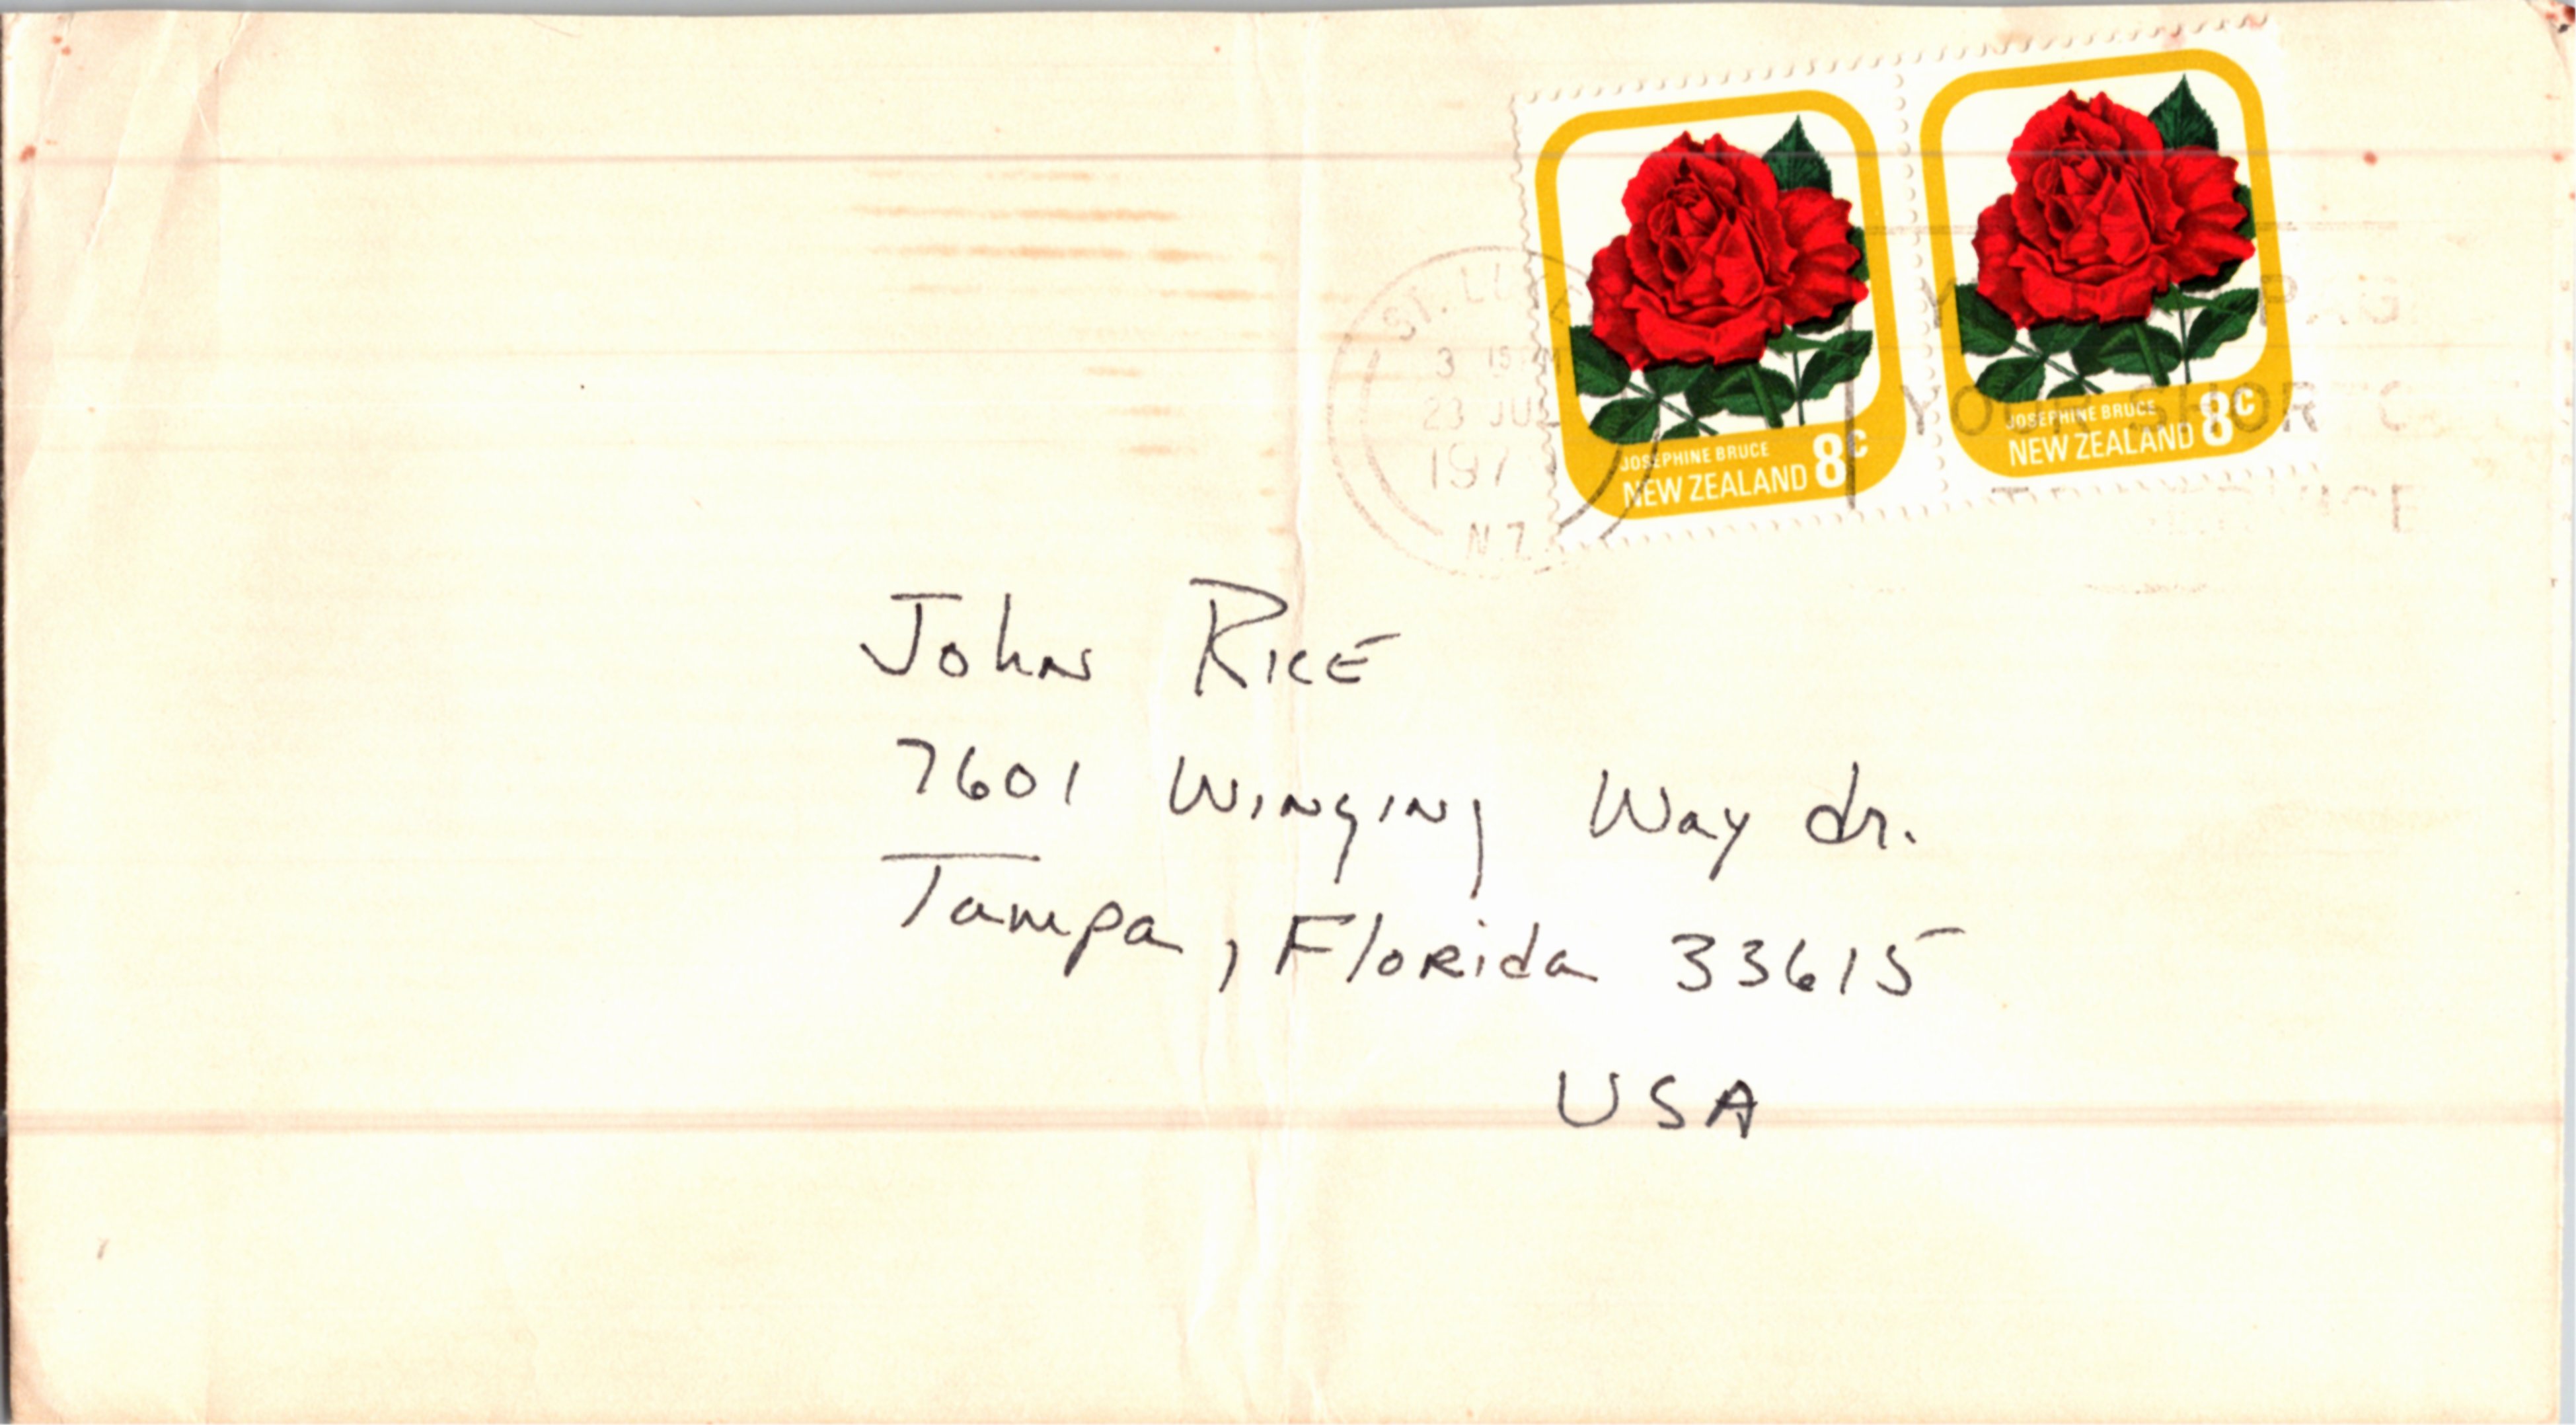 JOSEPHINE BRUCE 8c
NEW ZEALAND
JOSEPHINE BRUCE 8c
NEW ZEALAND
ST. LU
3 15 PM
23 JUL
197
N.Z.
YOUR
John Rice
7601 Winging Way dr.
Tampa, Florida 33615
USA